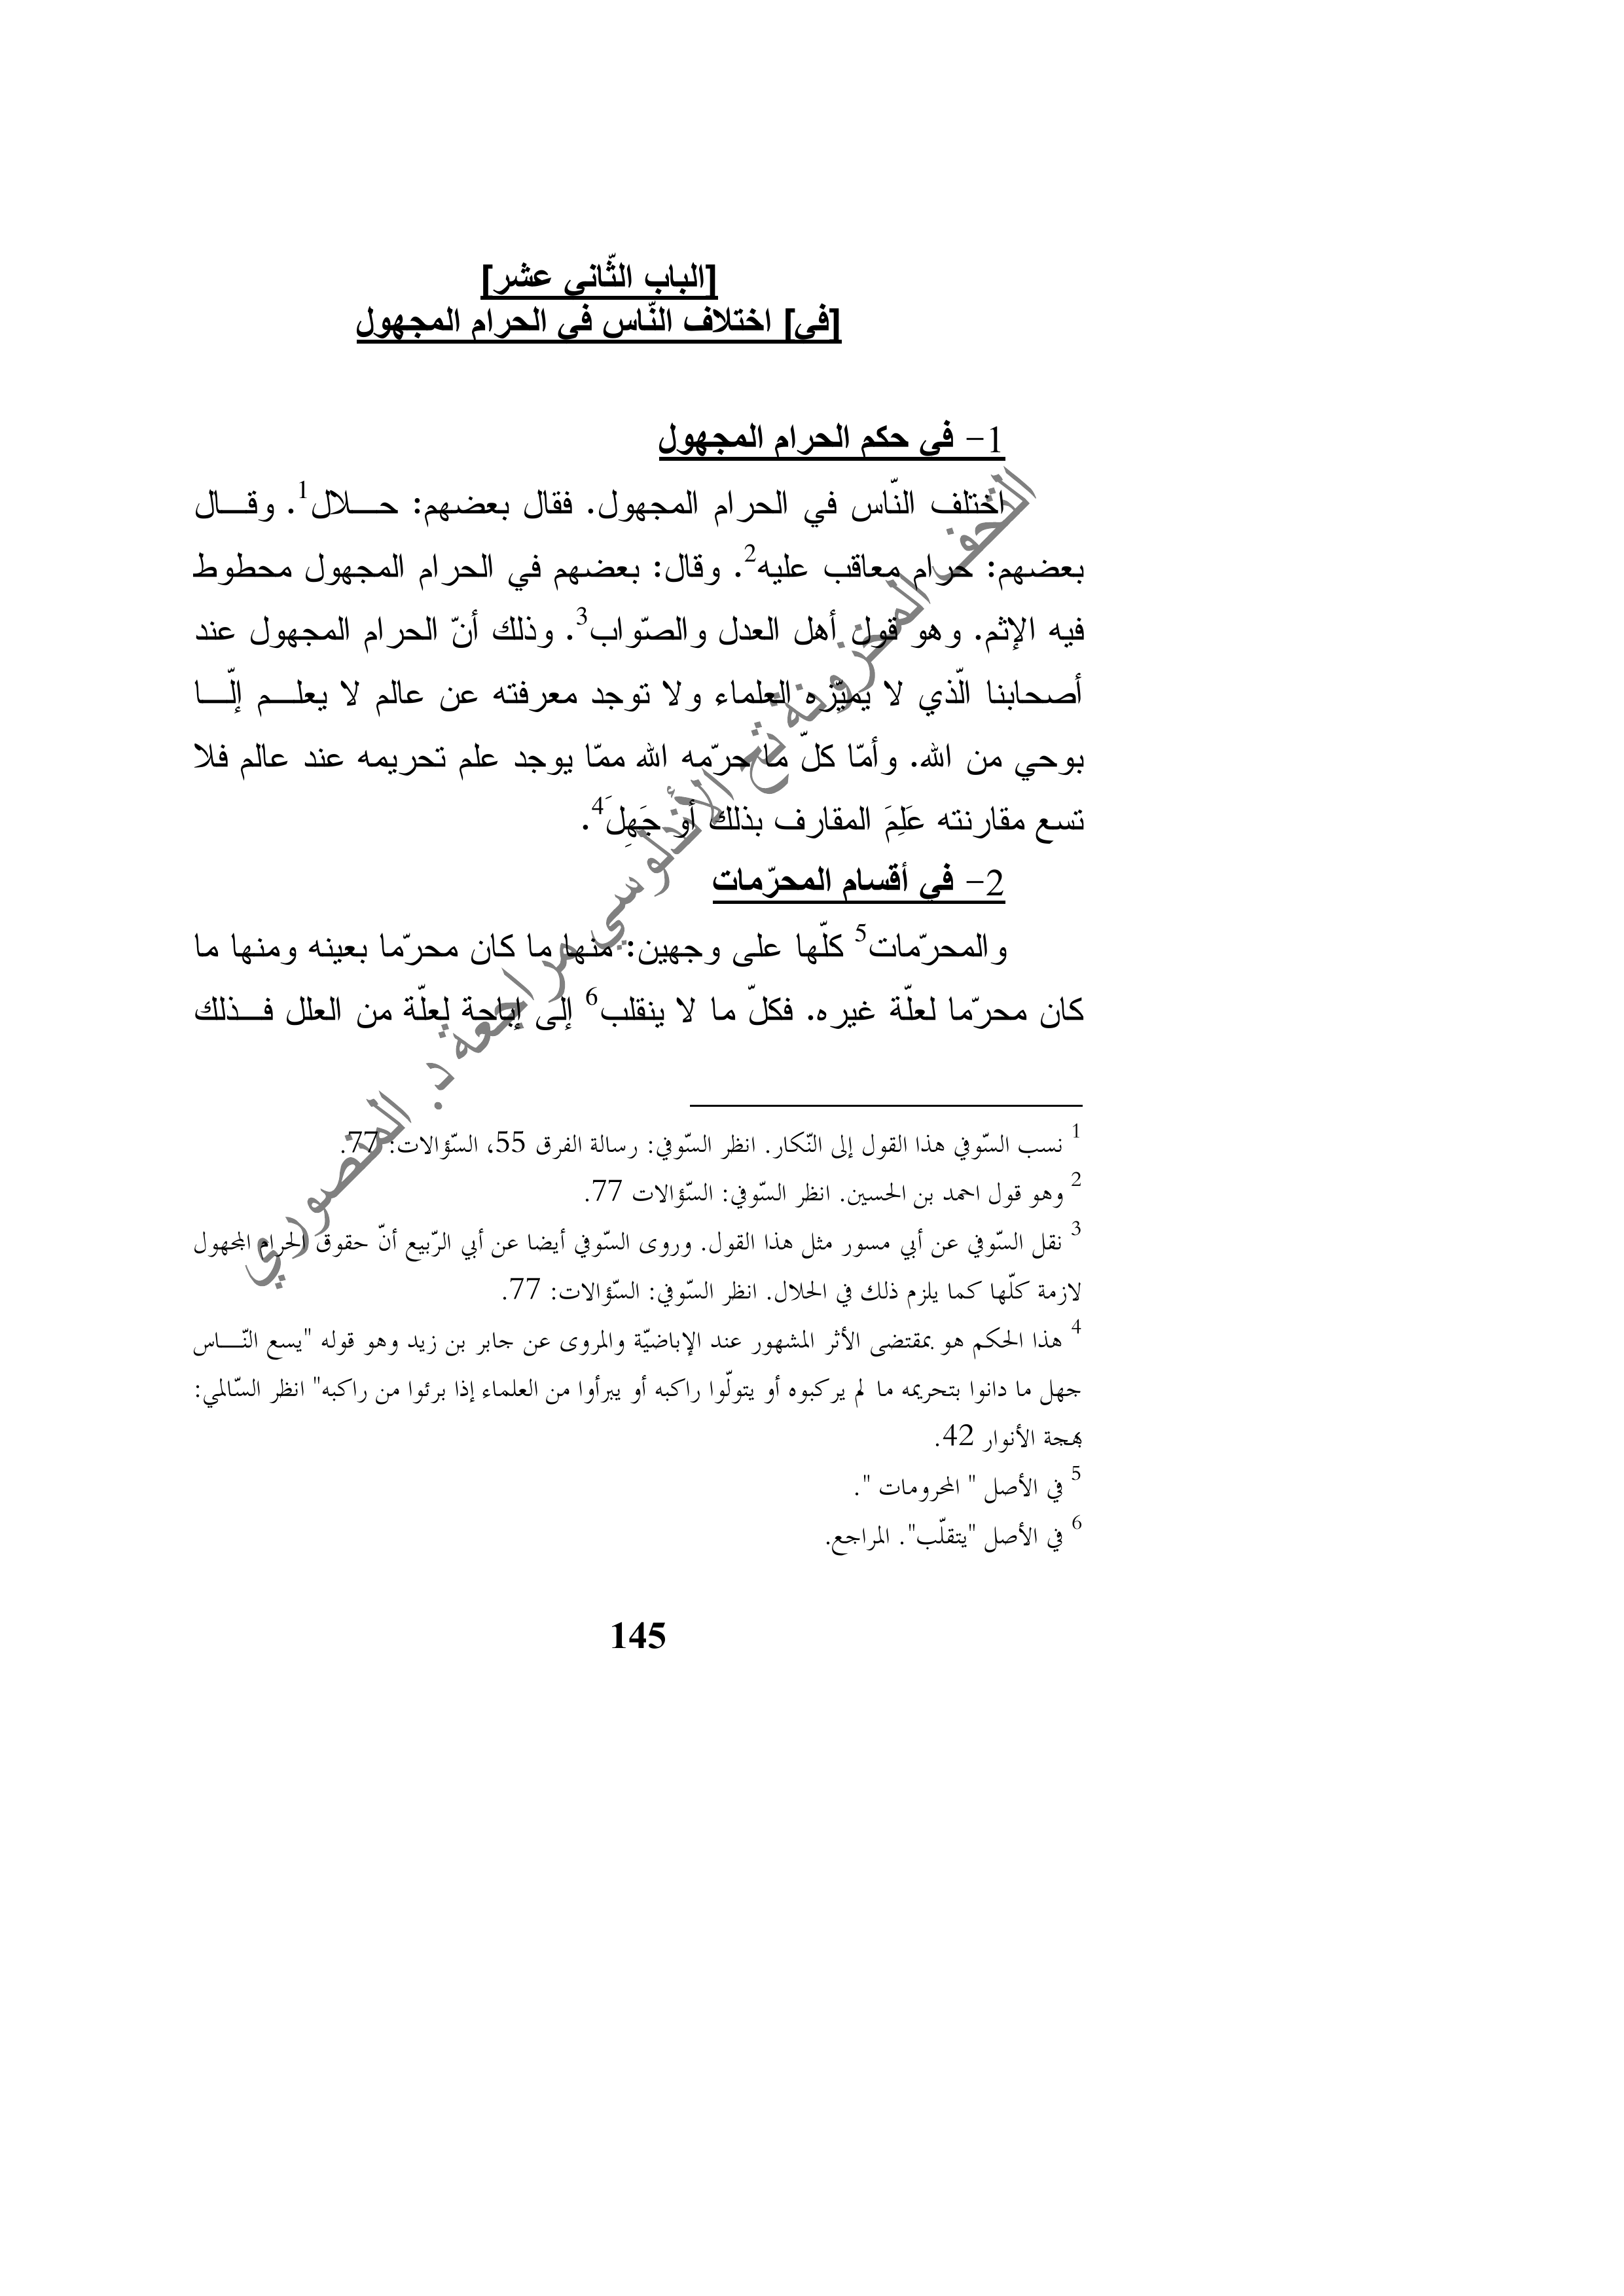 [الباب الثّاني عشر]
[في] اختلاف النّاس في الحرام المجهول
1- في حكم الحرام المجهول
اختلف النّاس في الحرام المجهول. فقال بعضهم: حـــلال1. وقـــال
بعضهم: حرام معاقب عليه2. وقال: بعضهم في الحرام المجهول محطوط
فيه الإثم. وهو قول أهل العدل والصّواب3. وذلك أنّ الحرام المجهول عند
أصحابنا الّذي لا يميّزه العلماء ولا توجد معرفته عن عالم لا يعلـــم إلّـــا
بوحي من الله. وأمّا كلّ ما حرّمه الله ممّا يوجد علم تحريمه عند عالم فلا
تسع مقارنته عَلِمَ المقارف بذلك أو جَهِلَ4.
2- في أقسام المحرّمات
والمحرّمات5 كلّها على وجهين: منها ما كان محرّما بعينه ومنها ما
كان محرّما لعلّة غيره. فكلّ ما لا ينقلب6 إلى إباحة لعلّة من العلل فـــذلك
1 نسب السّوفي هذا القول إلى النّكار. انظر السّوفي: رسالة الفرق 55، السّؤالات: 77.
2 وهو قول احمد بن الحسين. انظر السّوفي: السّؤالات 77.
3 نقل السّوفي عن أبي مسور مثل هذا القول. وروى السّوفي أيضا عن أبي الرّبيع أنّ حقوق الحرام المجهول
لازمة كلّها كما يلزم ذلك في الحلال. انظر السّوفي: السّؤالات: 77.
4 هذا الحكم هو بمقتضى الأثر المشهور عند الإباضيّة والمروى عن جابر بن زيد وهو قوله "يسع النّـــاس
جهل ما دانوا بتحريمه ما لم يركبوه أو يتولّوا راكبه أو يبرأوا من العلماء إذا برئوا من راكبه" انظر السّالمي:
بهجة الأنوار 42.
5 في الأصل " المحرومات ".
6 في الأصل "يتقلّب". المراجع.
145
التحف المخزونة تح الأندلوسي مراجعة د. المنصوري